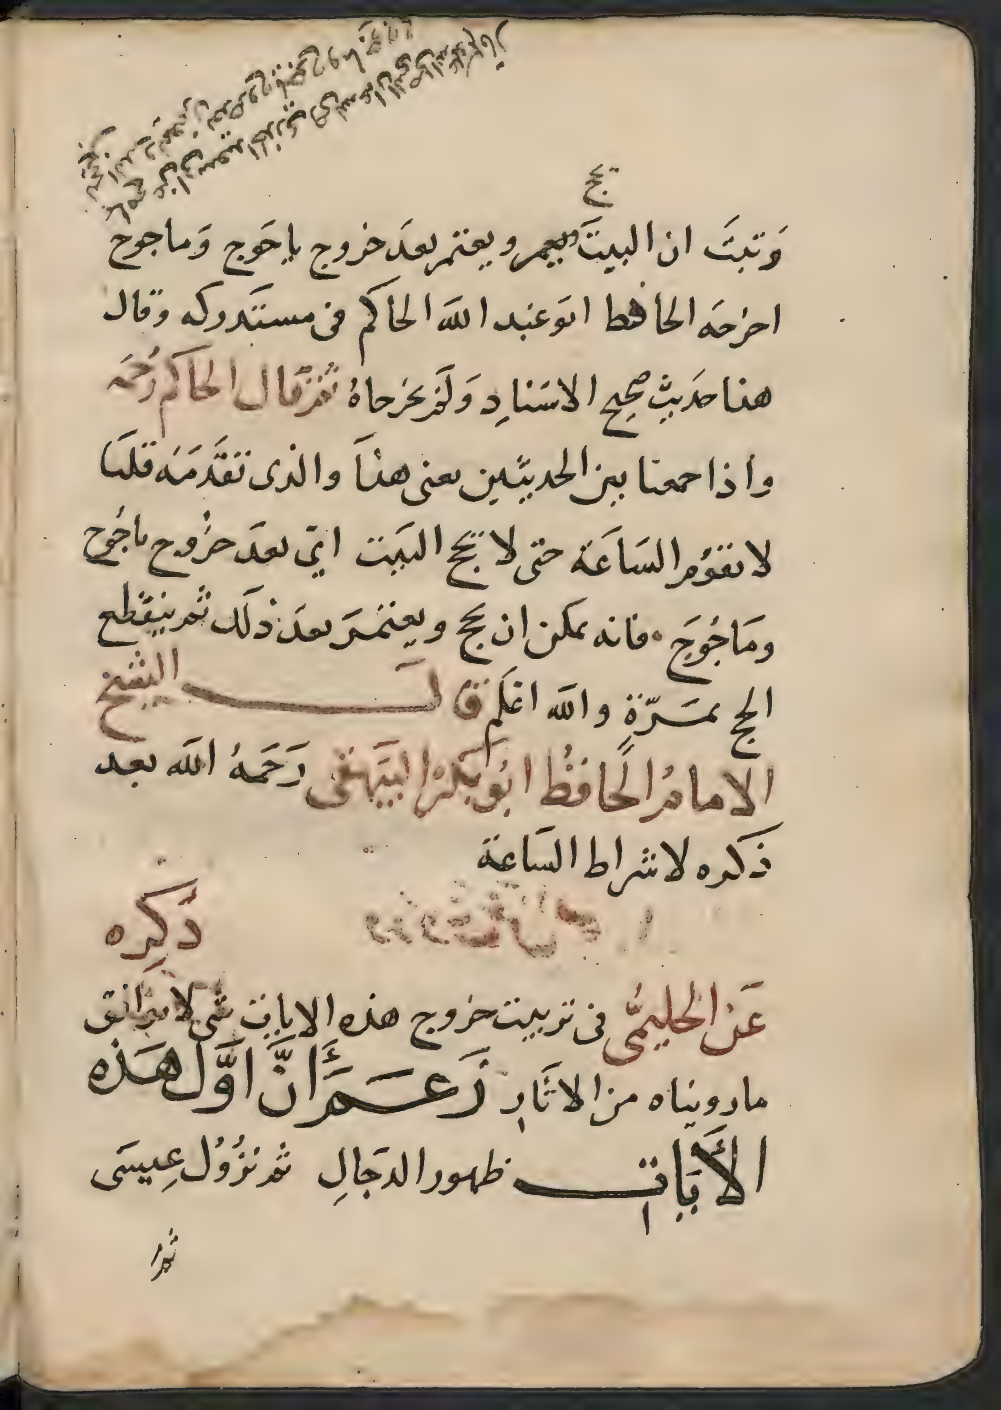 يحج
وَتبتَ ان البيتَ ويعتمر بعدَ خروج ياجَوج وَماجوح
اخرجَه الحافظ ابَو عَبد اللهَ الحاكم في مستَدركه وقال
هذا حَديث صحيح الاسَناد وَلَم يخرجاهُ ثم قال الحاكم رَحمَه
واذا جمعنا بين الحديثين يعني هذَا والذى تقَدمَه قلنا
لا تقوُم السَاعَة حتى لا يحج البَيت اي بعدَ خرُوج ياجُوج
ومَاجُوجَ فانه يمكن ان يحج ويعتمَر بعدَ ذلَك ثم ينقطع
الحج بمَرّةٍ والله اعَلم قال الشيخ
الامامُ الحَافظُ ابُو بَكرْ البَيهَقى رَحَمهُ الله بعد
ذَكره لاشراط السَاعة
ذَكره
عَنْ الحَليمىُّ فى ترتيبَ خروج هذه الايات شى لا يوافق
ما روينَاه من الاثَار زَعَمَ أَنَّ اوَّل هَذه
الأَيَات ظهور الدجَالِ ثم نزُوُل عِيسَى
ثم